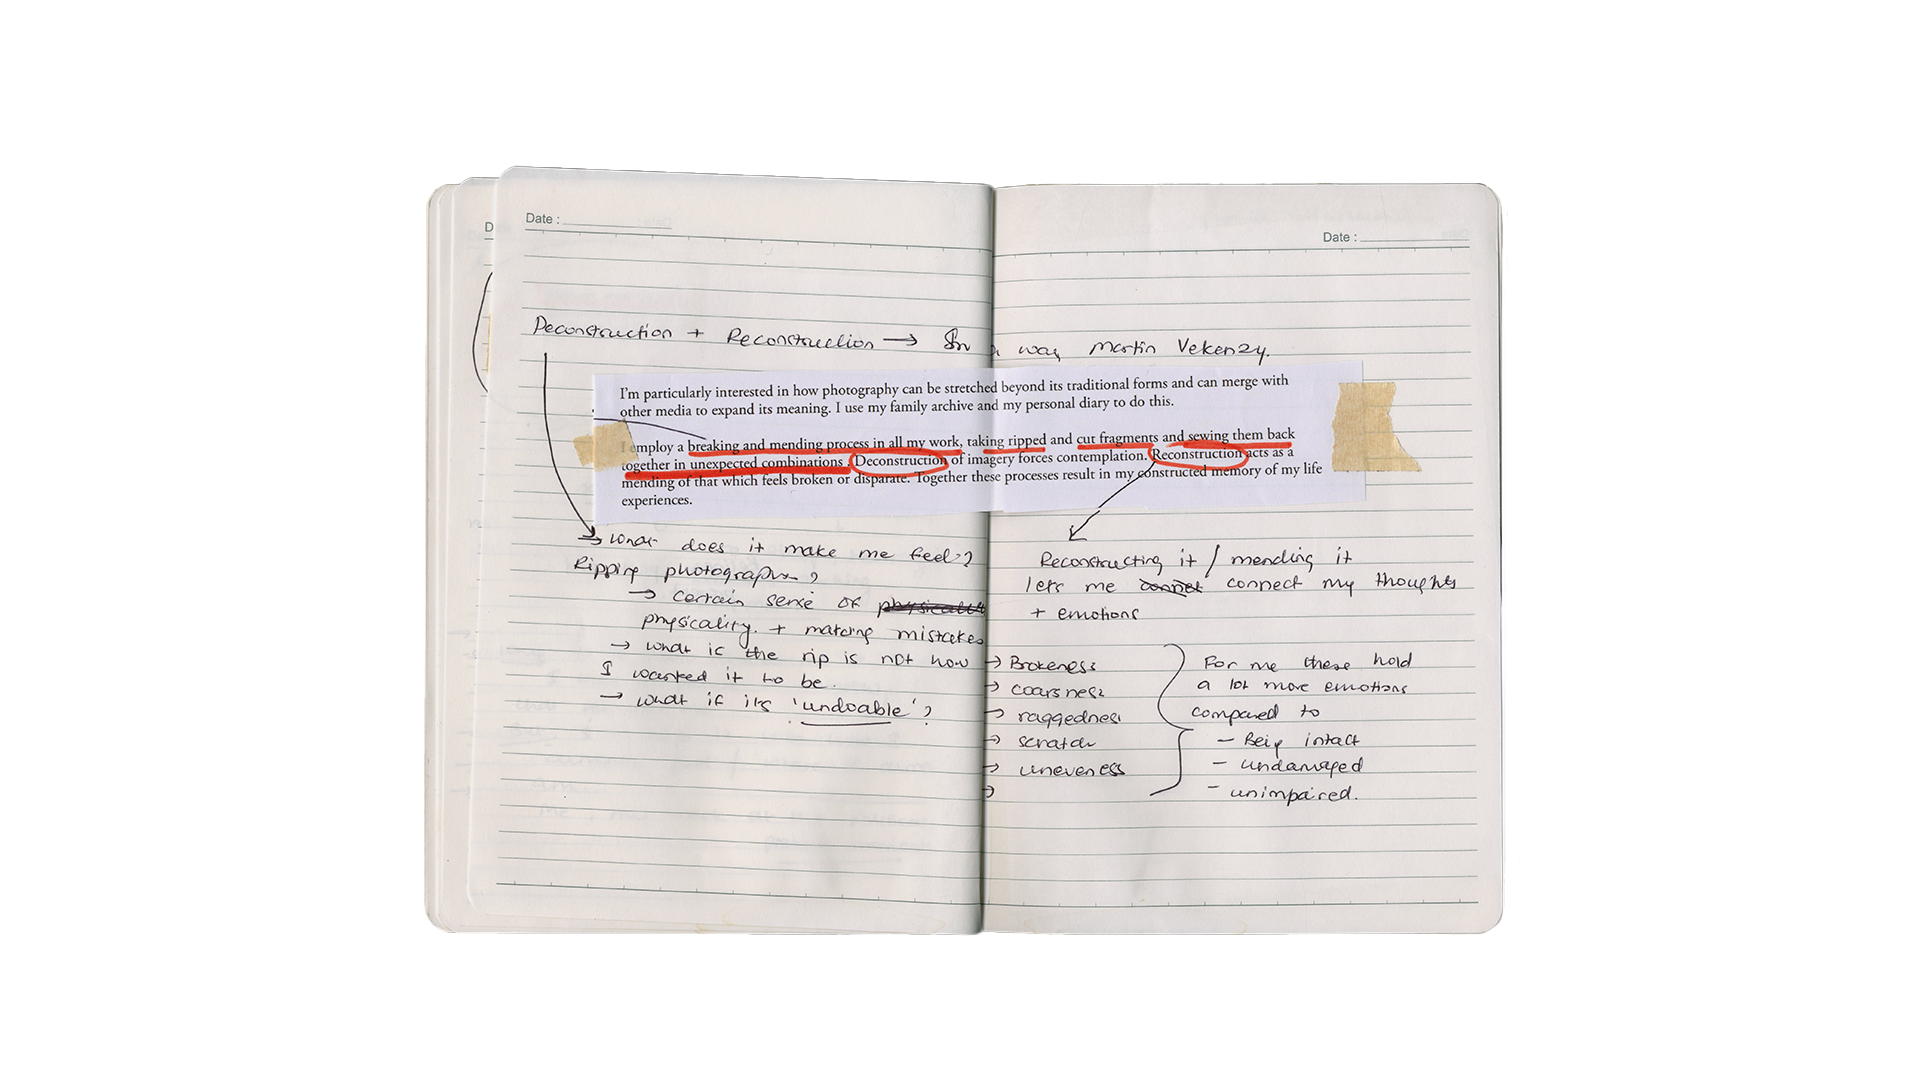 Date :
Date :
D
Deconstruction + Reconstruction → In a way Martin Vekenzy.
I'm particularly interested in how photography can be stretched beyond its traditional forms and can merge with
other media to expand its meaning. I use my family archive and my personal diary to do this.
I employ a breaking and mending process in all my work, taking ripped and cut fragments and sewing them back
together in unexpected combinations. Deconstruction of imagery forces contemplation. Reconstruction acts as a
mending of that which feels broken or disparate. Together these processes result in my constructed memory of my life
experiences.
→ What does it make me feel?
Ripping photographs?
→ certain sense of physicality
physicality. + making mistakes
→ what is the rip is not how
I wanted it to be.
→ what if its 'undoable'?
Reconstructing it / mending it
lets me connect my thoughts
+ emotions
→ Brokeness
→ coarsness
→ raggedness
→ scratch
→ uneveness
→
For me these hold
a lot more emotions
compared to
- Being intact
- undamaged
- unimpaired.